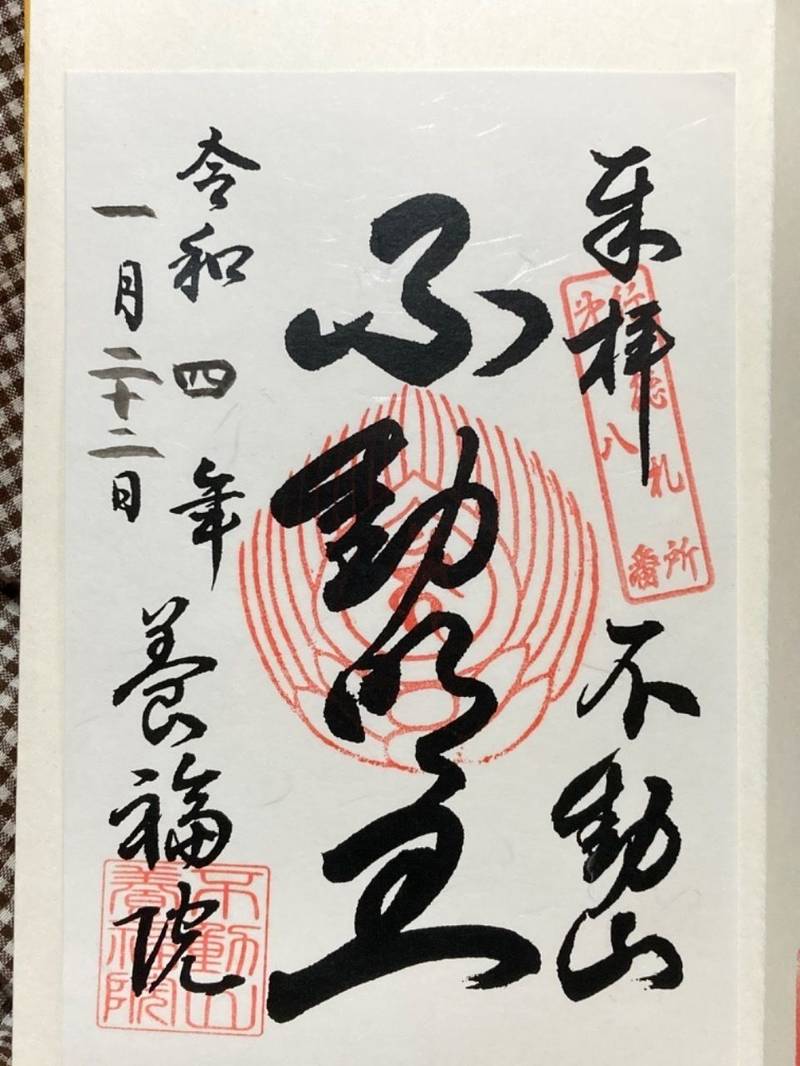 奉拝 不動山
札所
第八番
不動明王
令和四年 養福院
一月二十二日
不動山
養福院